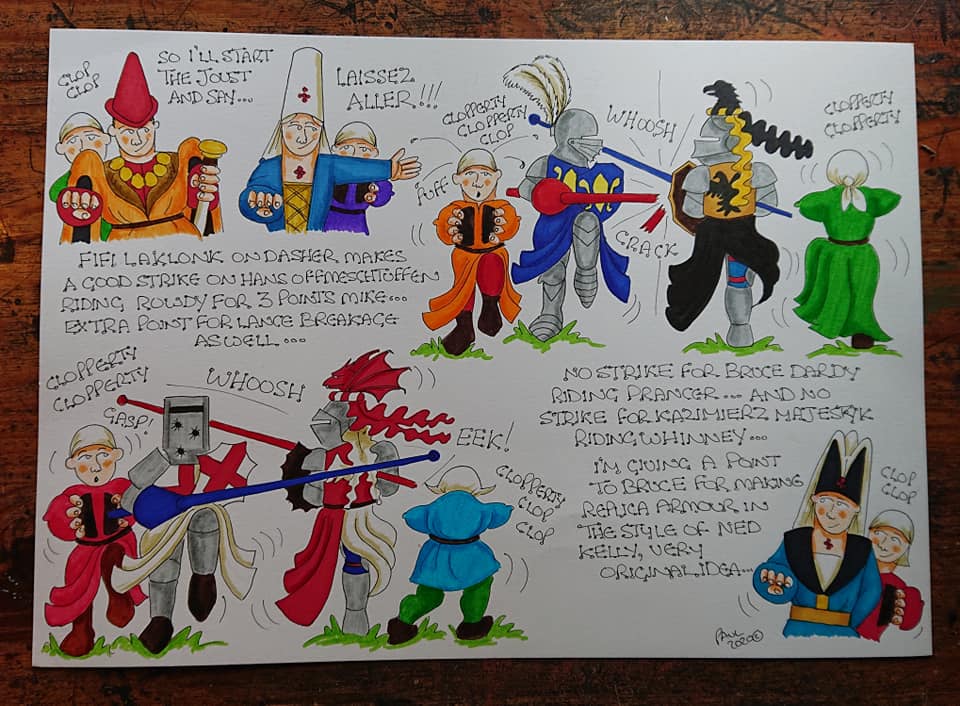 CLOP
CLOP
SO I'LL START
THE JOUST
AND SAY...
LAISSEZ
ALLER!!!
CLOPPERTY
CLOPPERTY
CLOP
PUFF
WHOOSH
CRACK
CLOPPERTY
CLOPPERTY
FIFI LAKLONK ON DASHER MAKES
A GOOD STRIKE ON HANS OFFMESCHTUFFEN
RIDING ROWDY FOR 3 POINTS MIKE...
EXTRA POINT FOR LANCE BREAKAGE
AS WELL...
CLOPPERTY
CLOPPERTY
GASP!
WHOOSH
EEK!
CLOPPERTY
CLOP
CLOP
NO STRIKE FOR BRUCE DARDY
RIDING PRANCER... AND NO
STRIKE FOR KAZIMIERZ MAJESTYK
RIDING WHINNEY...
I'M GIVING A POINT
TO BRUCE FOR MAKING
REPLICA ARMOUR IN
THE STYLE OF NED
KELLY, VERY
ORIGINAL IDEA...
CLOP
CLOP
PAUL
2020©